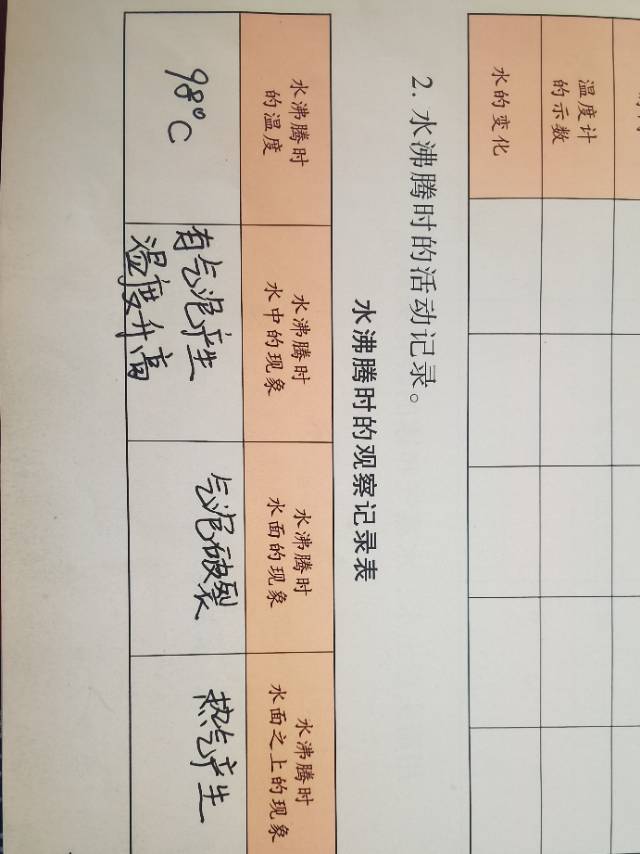 温度计
的示数
水的变化
2. 水沸腾时的活动记录。
水沸腾时的观察记录表
水沸腾时
的温度
水沸腾时
水中的现象
水沸腾时
水面的现象
水沸腾时
水面之上的现象
98°C
有气泡产生
温度升高
气泡破裂
热气产生